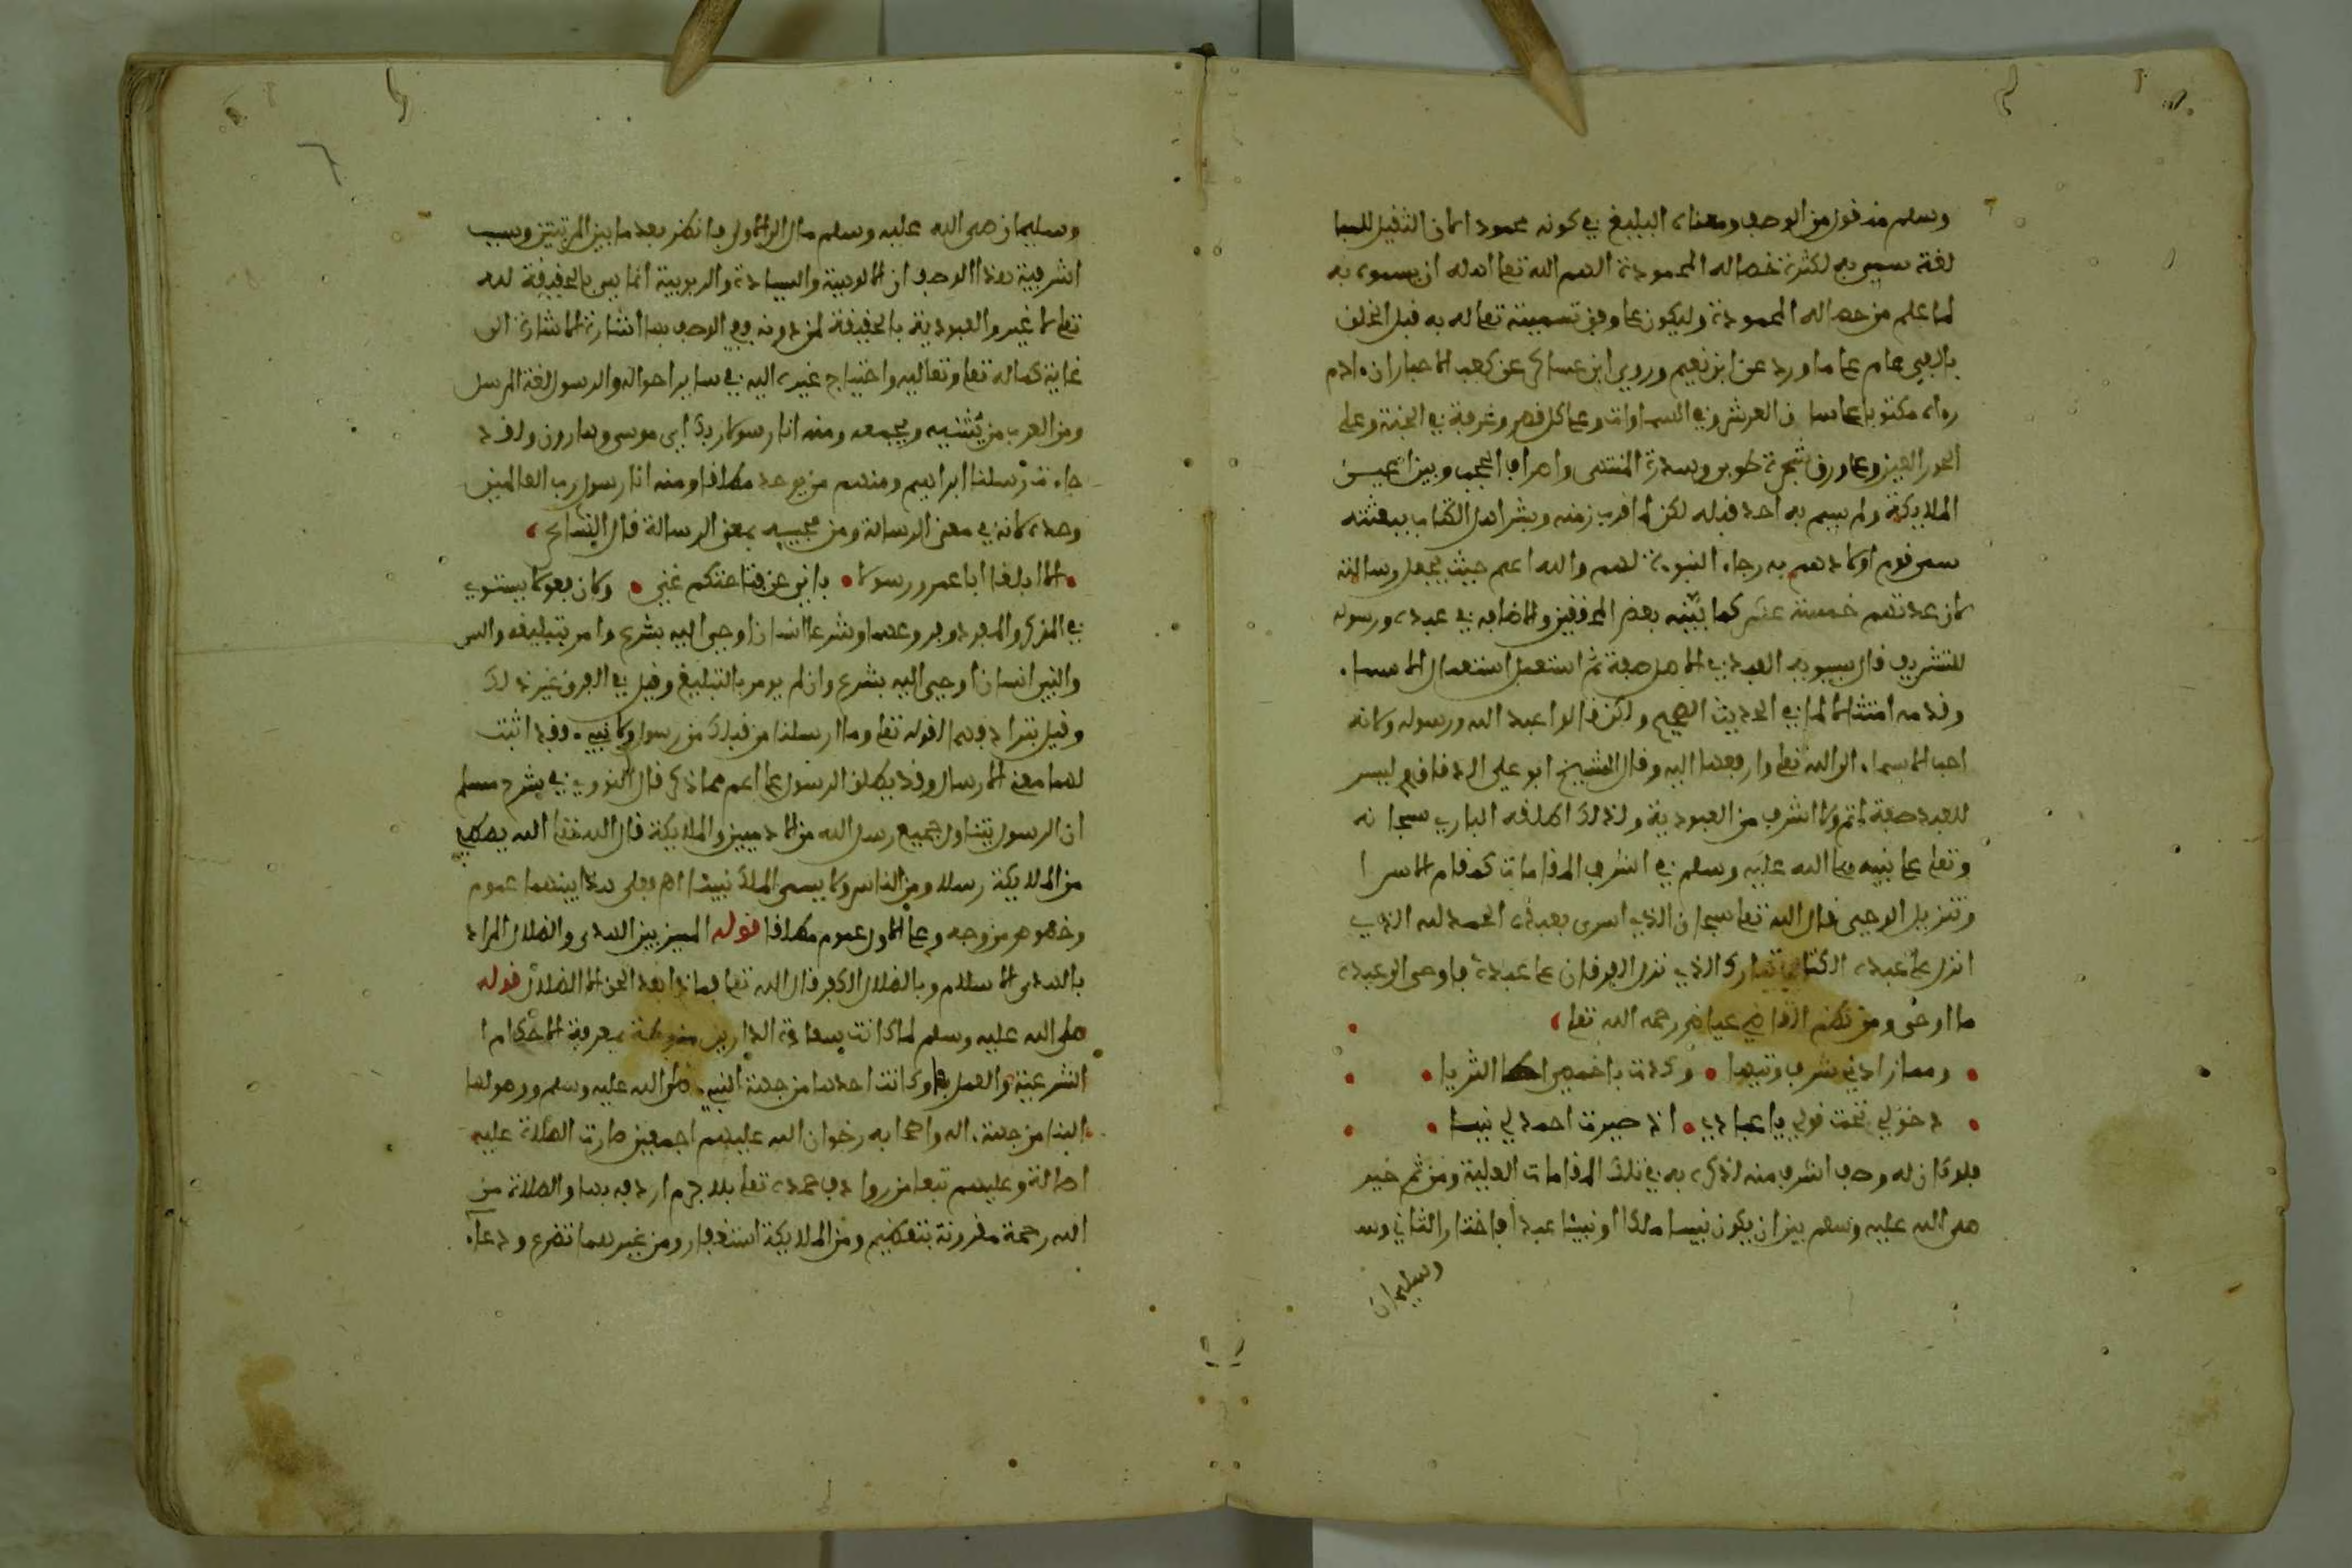 وسلم منقول من الوصف ومعناه البليغ في كونه محمودا مان الثقيل للمبا
لغة سمي به لكثرة خصاله المحمودة الهم الله تعا اهله ان يسموه به
لما علم من خصاله المحمودة وليكون على وفق تسميته تعا له به قبل الخلق
بالفي عام على ما ورد عن ابي نعيم وروى ابن عساكر عن كعب الاحبار ان ءادم
رءاه مكتوبا على ساق العرش وفي السماوات وعلى كل قصر وغرفة في الجنة وعلى
الحور العين وعلى ورق شجرة طوبى وسدرة المنتهى واطراف الحجب وبين اعين
الملايكة ولم يسم به احد قبله لكن لما قرب زمنه وبشر اهل الكتاب ببعثته
سمى قوم اولادهم به رجاء النبوءة لهم والله اعلم حيث يجعل رسالته
كان عدتهم خمسة عشر كما بيّنه بعض المحققين والاضافة في عبده ورسوله
للتشريف قال سيبويه العبد في الاصل صفة ثم استعمل استعمال الاسماء
وقدمه امتثالا لما في الحديث الصحيح ولكن قولوا عبد الله ورسوله ولانه
احب الاسماء الى الله تعا وارفعها اليه وقال الشيخ ابو علي الدقاق ليس
للعبد صفة اتم ولا اشرف من العبودية ولذلك اطلقه الباري سبحانه
وتعا على نبيه صلى الله عليه وسلم في اشرف المقامات كمقام الاسرا
وتنزيل الوحي قال الله تعا سبحان الذي اسرى بعبده الحمد لله الذي
انزل على عبده الكتاب تبارك الذي نزل الفرقان على عبده فاوحى الى عبده
ما اوحى ومن نظم القاضي عياض رحمه الله تعا
ومما زادني شرفا وتيها وكدت باخمصي اطا الثريا
دخولي تحت قولك يا عبادي ان صيرت احمد لي نبيا
فلو كان له وصف اشرف منه لذكره به في تلك المقامات العلية ومن ثم خير
صلى الله عليه وسلم بين ان يكون نبيا ملكا او نبيا عبدا فاختار الثاني وسـ
وسليمان
وسليمان صلى الله عليه وسلم مال الى الاول فانظر بعد ما بين المرتبتين وسبب
اشرفية هذا الوصف ان الالوهية والسيادة والربوبية انما هي بالحقيقة لله
تعا لا غير والعبودية بالحقيقة لمن دونه ففي الوصف بها اشارة الاشارة الى
غاية كماله تعا وتعاليه واحتياج غيره اليه في ساير احواله والرسول لغة المرسل
ومن العرب من يثنيه ويجمعه ومنه انا رسولا ربك اي موسى وهارون ولقد
جاءت رسلنا ابراهيم ومنهم من يوحد مطلقا ومنه انا رسول رب العالمين
وحده لانه في معنى الرسالة ومن مجيبه بمعنى الرسالة قال الشاعر
الا ابلغا ابا عمرو رسولا باني عن فتاحتكم غني وكان فعولا يستوي
في المذكر والمفرد وفروعهما وشرعا انسان اوحي اليه بشرع وامر بتبليغه والنـ
والنبي انسان اوحي اليه بشرع وان لم يومر بالتبليغ وقيل في الفرق غير ذلك
وقيل بترادفهما لقوله تعا وما ارسلنا من قبلك من رسول ولا نبيء فقد اثبت
لهما معنى الارسال وقد يطلق الرسول على اعم مما ذكر قال النووي في شرح مسلم
ان الرسول يتناول جميع رسل الله من الادميين والملايكة قال الله تعا الله يصطفي
من الملايكة رسلا ومن الناس ولا يسمى الملك نبيئا اهـ فعلى هذا بينهما عموم
وخصوص من وجه وعلى الاول عموم مطلقا قوله المميز بين الهدى والضلال المراد
بالهدى الاسلام وبالضلال الكفر قال الله تعا فماذا بعد الحق الا الضلال قوله
صلى الله عليه وسلم لما كانت سعادة الدارين منوطة بمعرفة الاحكام ا
الشرعية والعمل بها وكانت احدها من جهة النبيء صلى الله عليه وسلم ووصولها
الينا من جهة ءاله واصحابه رضوان الله عليهم اجمعين صارت الصلاة عليه
اصالة وعليهم تبعا من روادف حمده تعا بلا جرم اردفه بها والصلاة من
الله رحمة مقرونة بتعظيم ومن الملايكة استغفار ومن غيرهما تضرع ودعاء